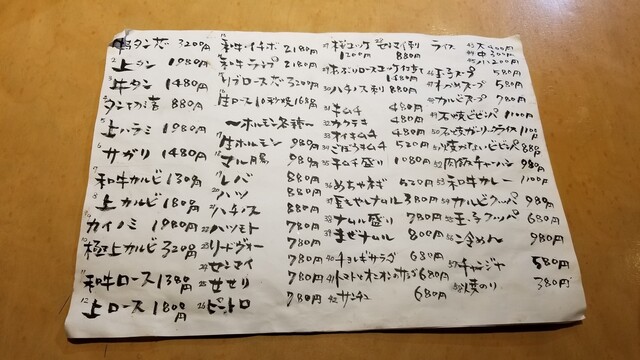 牛タン芯 3200円
2 上タン 1980円
3 牛タン 1480円
880円
5 上ハラミ 1980円
6 サガリ 1480円
和牛カルビ 1380円
上カルビ 1800円
カイノミ 1980円
極上カルビ 3200円
11 和牛ロース 1380円
12 上ロース 1800円
和牛イチボ 2180円
和牛ランプ 2180円
リブロース芯 3200円
牛ロース10秒焼
〜ホルモン各種〜
牛ホルモン 980円
マル腸 980円
レバ 880円
ハツ 880円
ハチノス 880円
ハツモト 780円
リードヴォー 780円
センマイ 780円
せせり 780円
26 ピートロ 780円
桜ユッケ 1200円
センマイ刺 880円
1480円
30 ハチノス刺 880円
31 キムチ 480円
32 カクテキ 480円
33 オイキムチ 480円
34 ごぼうキムチ 520円
35 キムチ盛り 1080円
36 めちゃネギ 520円
37 豆もやしナムル 380円
38 ナムル盛り 780円
39 まぜナムル 800円
40 チョレギサラダ 680円
41 トマトとオニオンのサラダ 680円
42 サンチュ 680円
ライス
43 大 400円
44 中 300円
45 小 200円
46 玉子スープ 580円
47 わかめスープ 580円
48 カルビスープ 780円
49 石焼ビビンバ 1100円
50 石焼ガーリックライス 1100円
51 焼かないビビンバ 880円
52 肉飯チャーハン 980円
53 和牛カレー 1100円
54 カルビクッパ 980円
55 玉子クッパ 680円
56 冷めん 980円
57 チャンジャ 580円
58 焼のり 380円